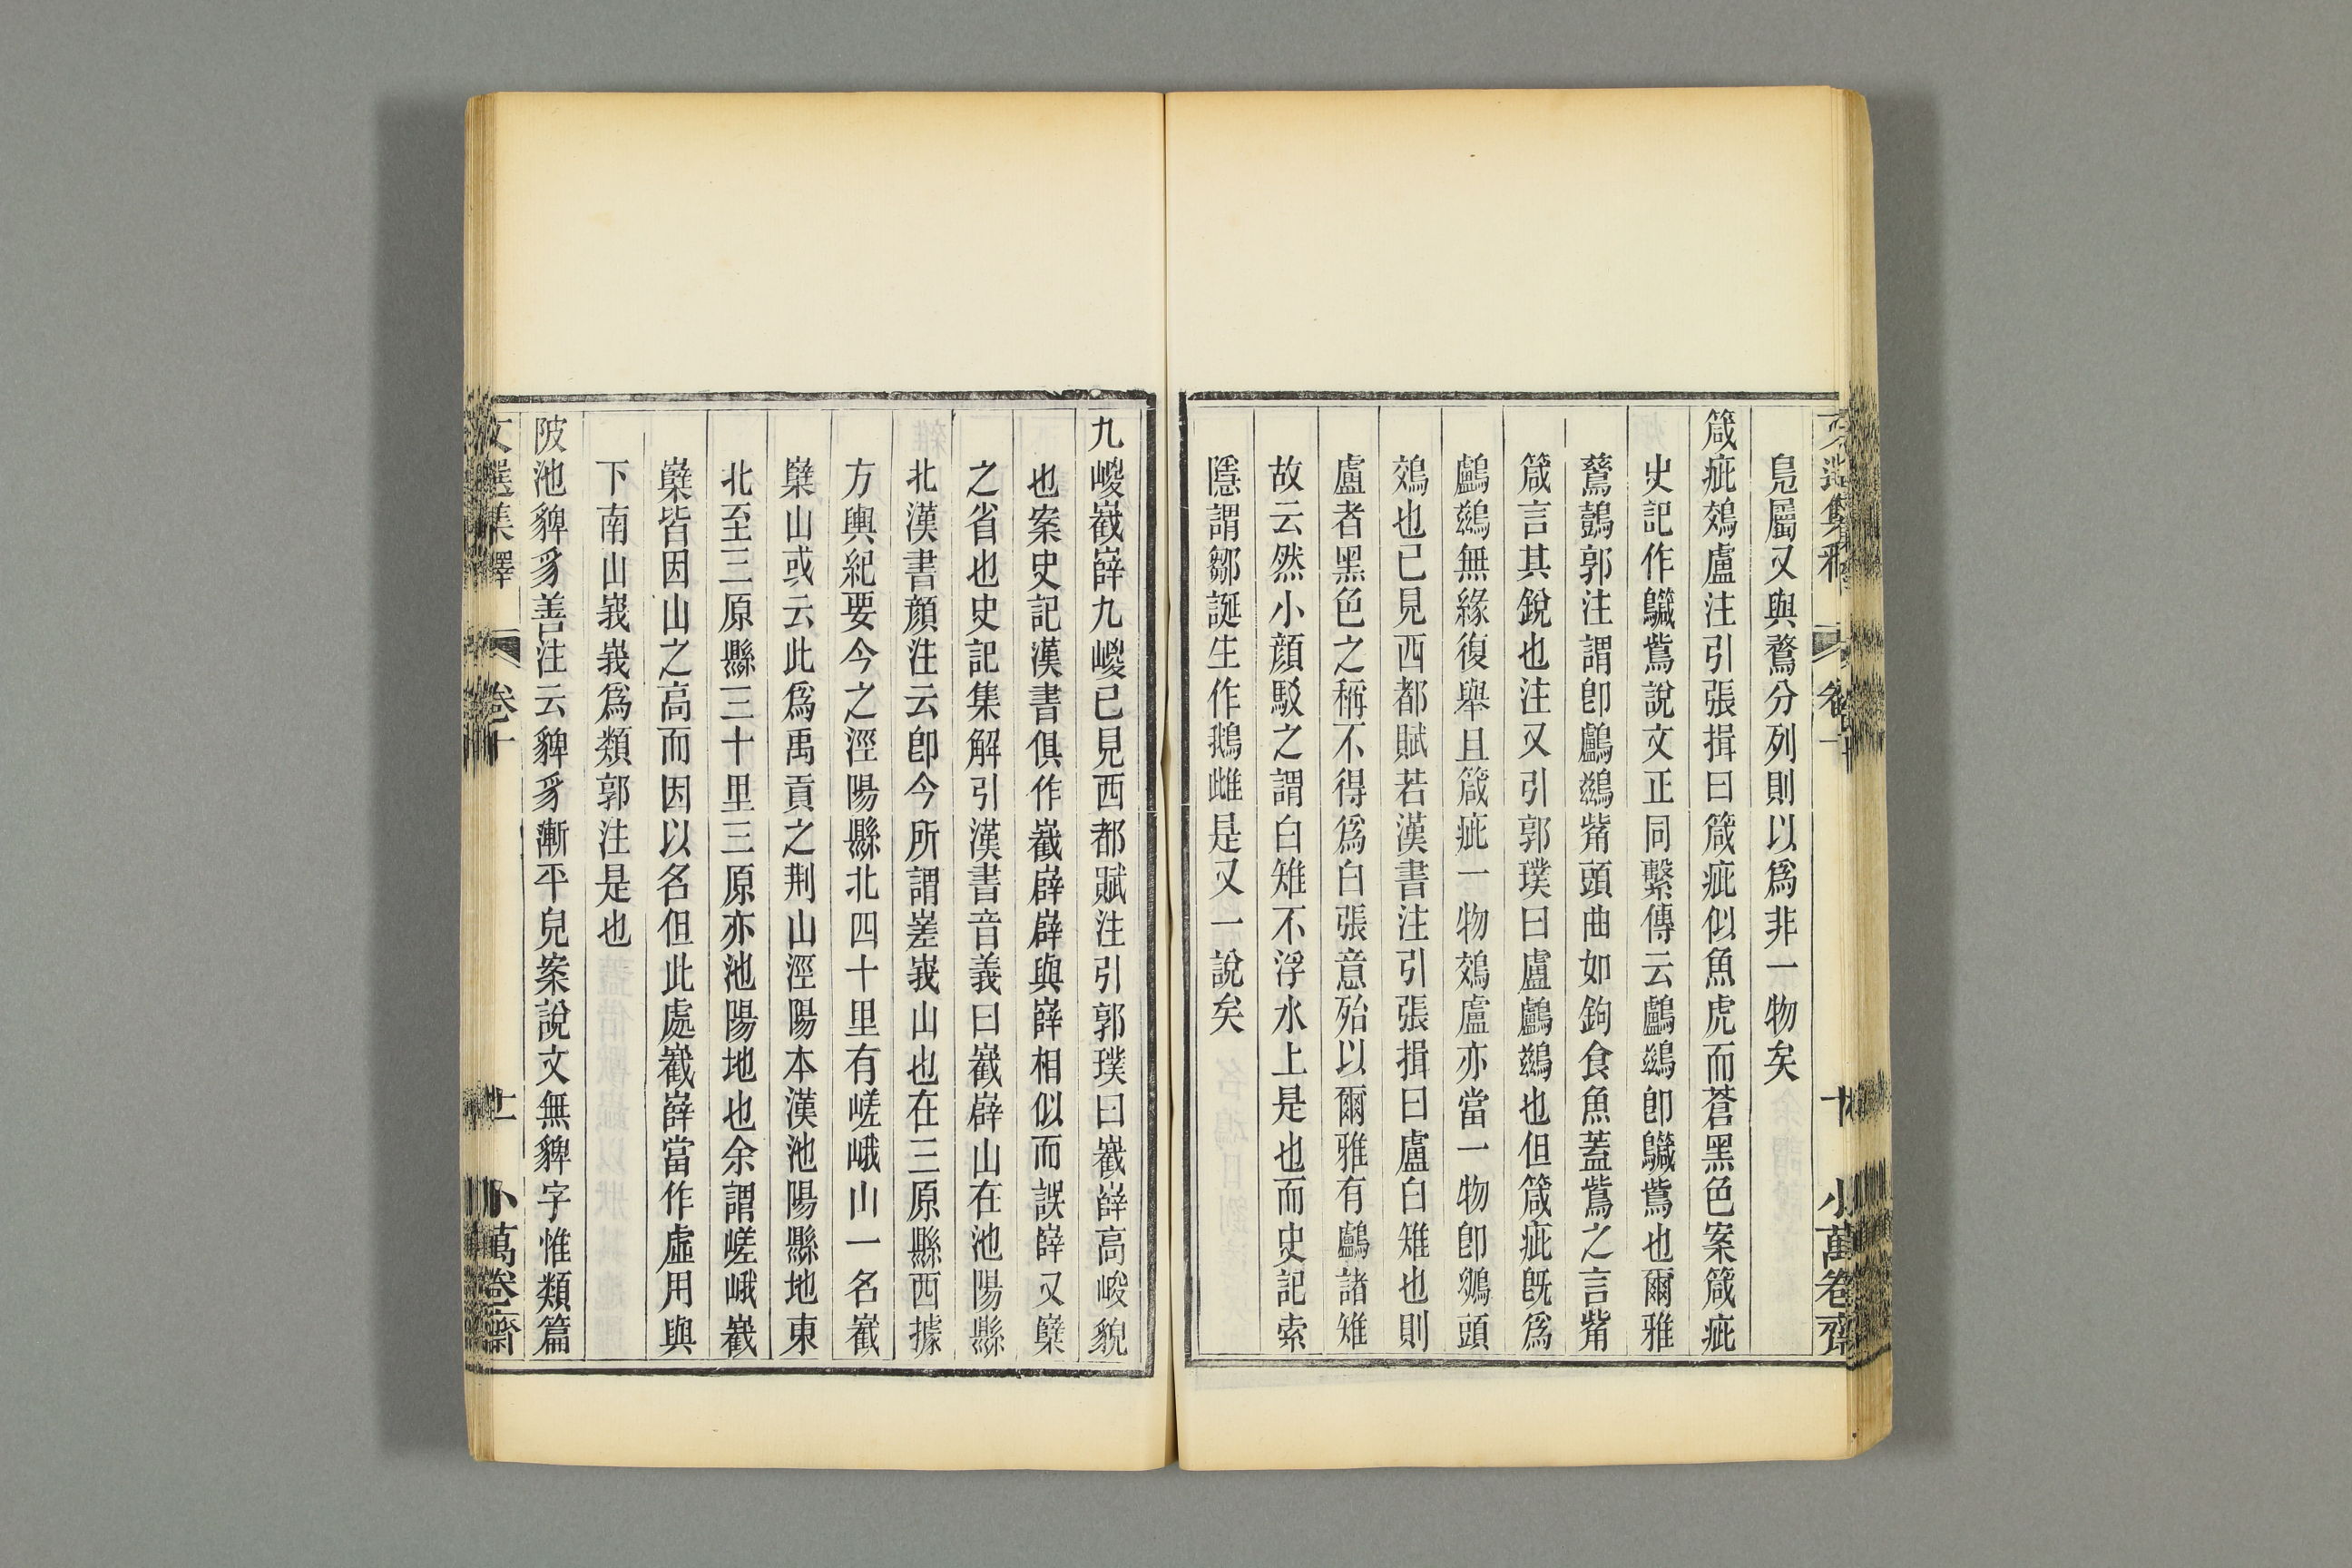 鳧屬又與鶩分列則以爲非一物矣
箴疵鵁盧注引張揖曰箴疵似魚虎而蒼黑色案箴疵
史記作鱵鴜說文正同繫傳云鸕鷀卽鱵鴜也爾雅
鶿鷧郭注謂卽鸕鷀觜頭曲如鉤食魚蓋鴜之言觜
箴言其銳也注又引郭璞曰盧鸕鷀也但箴疵旣爲
鸕鷀無緣復舉且箴疵一物鵁盧亦當一物卽鴢頭
鵁也已見西都賦若漢書注引張揖曰盧白雉也則
盧者黑色之稱不得爲白張意殆以爾雅有鸕諸雉
故云然小顏駁之謂白雉不浮水上是也而史記索
隱謂鄒誕生作鵜雌是又一說矣
九嵕嶻嶭九嵕已見西都賦注引郭璞曰嶻嶭高峻貌
也案史記漢書俱作嶻嶭嶭與嶭相似而誤嶭又㠔
之省也史記集解引漢書音義曰嶻嶭山在池陽縣
北漢書顏注云卽今所謂嵳峩山也在三原縣西據
方輿紀要今之涇陽縣北四十里有嵯峨山一名嶻
㠔山或云此爲禹貢之荆山涇陽本漢池陽縣地東
北至三原縣三十里三原亦池陽地也余謂嵯峨嶻
㠔皆因山之高而因以名但此處嶻嶭當作虛用與
下南山峩峩爲類郭注是也
陂池貏豸善注云貏豸漸平皃案說文無貏字惟類篇
文選集釋 卷十 十一 小萬卷齋